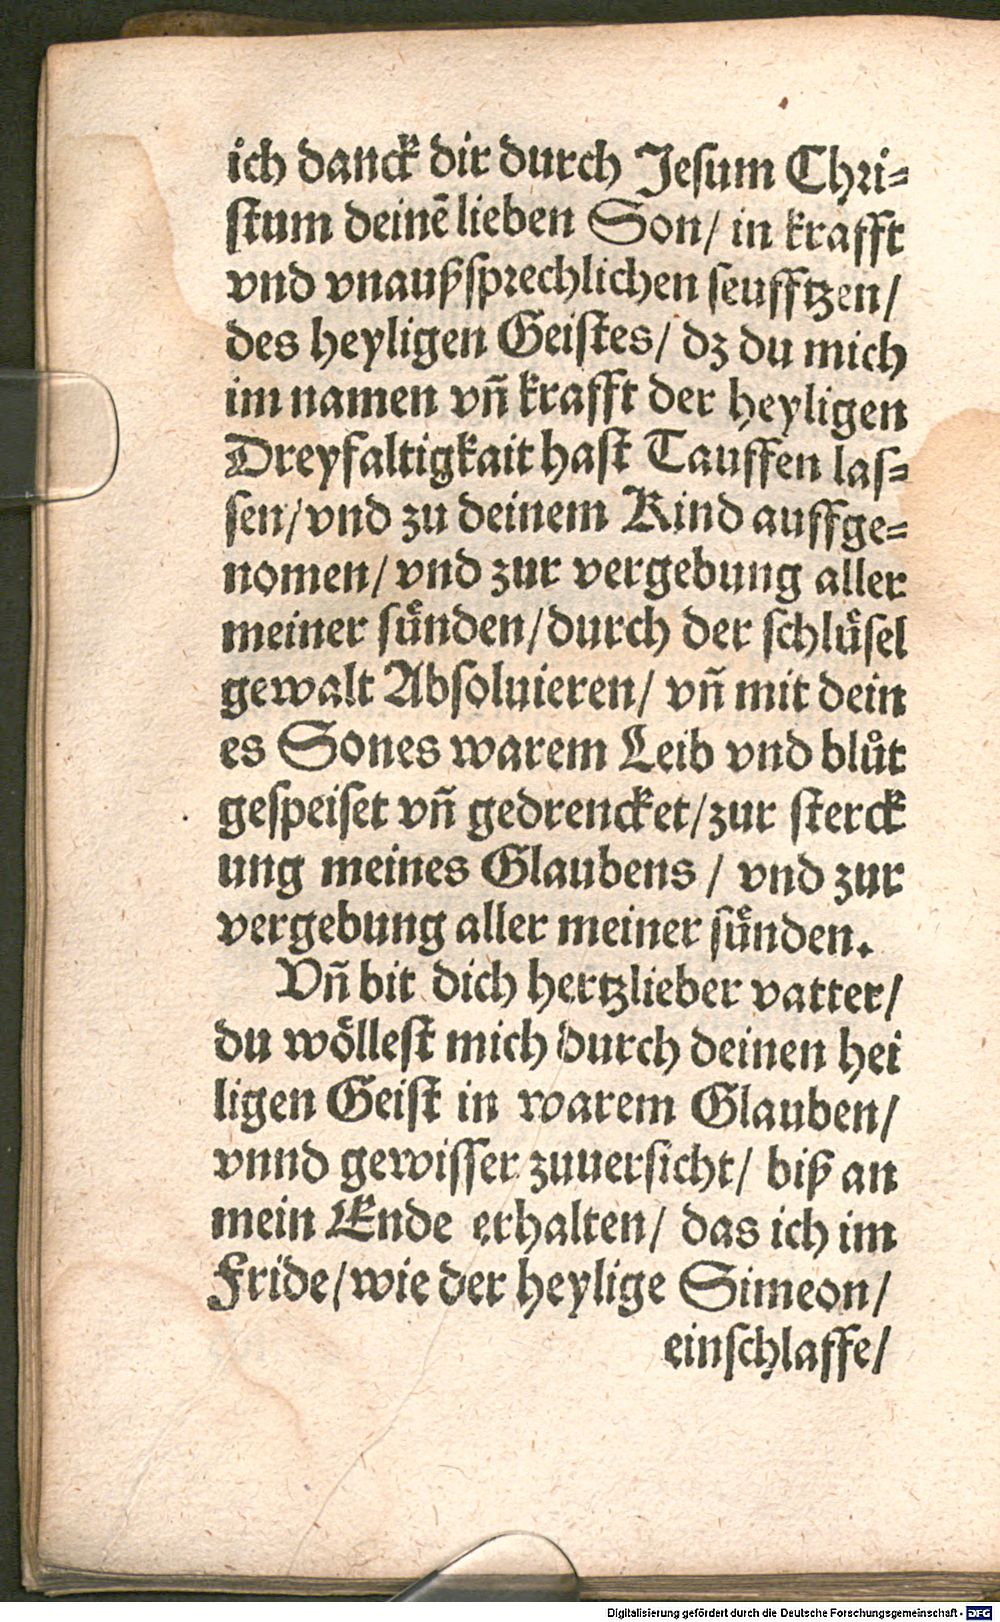 ich danck dir durch Jesum Chri⸗
stum deinē lieben Son/ in krafft
vnd vnaußsprechlichen seufftzen/
des heyligen Geistes/ dz du mich
im namen vñ krafft der heyligen
Dreyfaltigkait hast Tauffen las⸗
sen/vnd zu deinem Kind auffge⸗
nomen/ vnd zur vergebung aller
meiner suͤnden/durch der schluͤsel
gewalt Absoluieren/ vñ mit dein
es Sones warem Leib vnd bluͦt
gespeiset vñ gedrencket/zur sterck
ung meines Glaubens / vnd zur
vergebung aller meiner suͤnden.
Vñ bit dich hertzlieber vatter/
du woͤllest mich durch deinen hei
ligen Geist in warem Glauben/
vnnd gewisser zuuersicht/ biß an
mein Ende erhalten/ das ich im
Fride/wie der heylige Simeon/
einschlaffe/
Digitalisierung gefördert durch die Deutsche Forschungsgemeinschaft - DFG